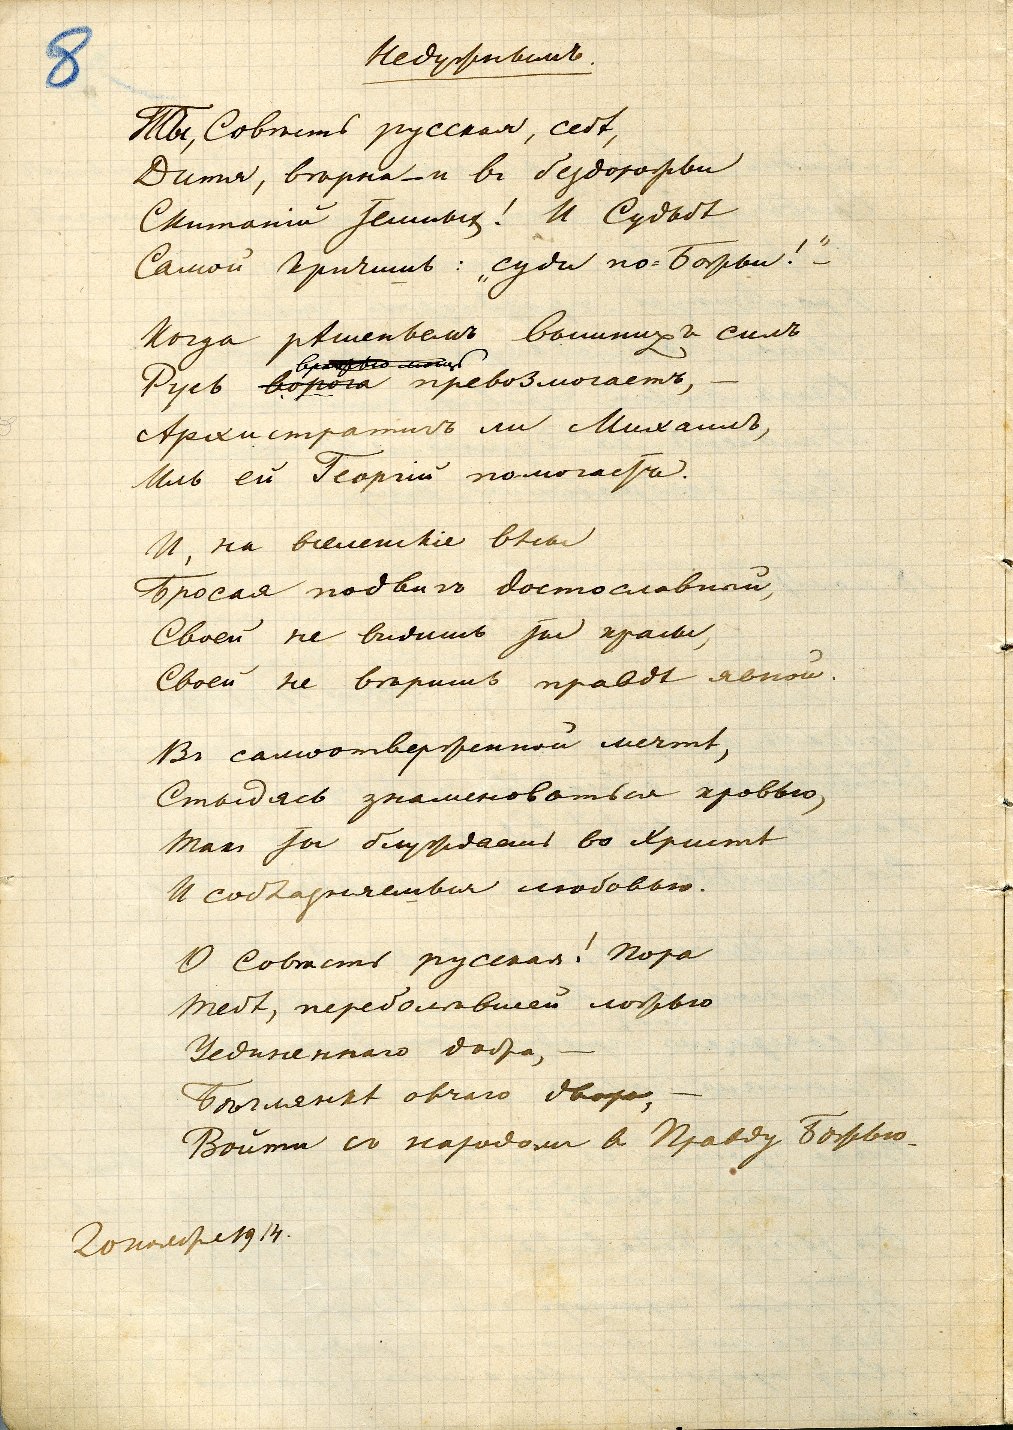 8
Недужнымъ.
Ты, Совѣсть русская, себѣ,
Дитя, вѣрна – и въ бездорожьи
Скитаній темныхъ! И Судьбѣ
Самой кричишь: „суди по-Божьи!" –
Когда рѣшеньемъ вышнихъ силъ
вражью мощь
Русь ворога превозмогаетъ, –
Архистратигъ ли Михаилъ,
Иль ей Георгій помогаетъ.
И, на вселенскіе вѣсы
Бросая подвигъ достославный,
Своей не видишь ты красы,
Своей не вѣришь правдѣ явной.
Въ самоотверженной мечтѣ,
Стыдясь знаменоваться кровью,
Такъ ты блуждаешь во Христѣ
И соблазняешься любовью.
О Совѣсть русская! Пора
Тебѣ, переболѣвшей ложью
Уединеннаго добра, –
Бѣглянкѣ овчаго двора, –
Войти съ народомъ въ Правду Божью.
20 ноября 1914.